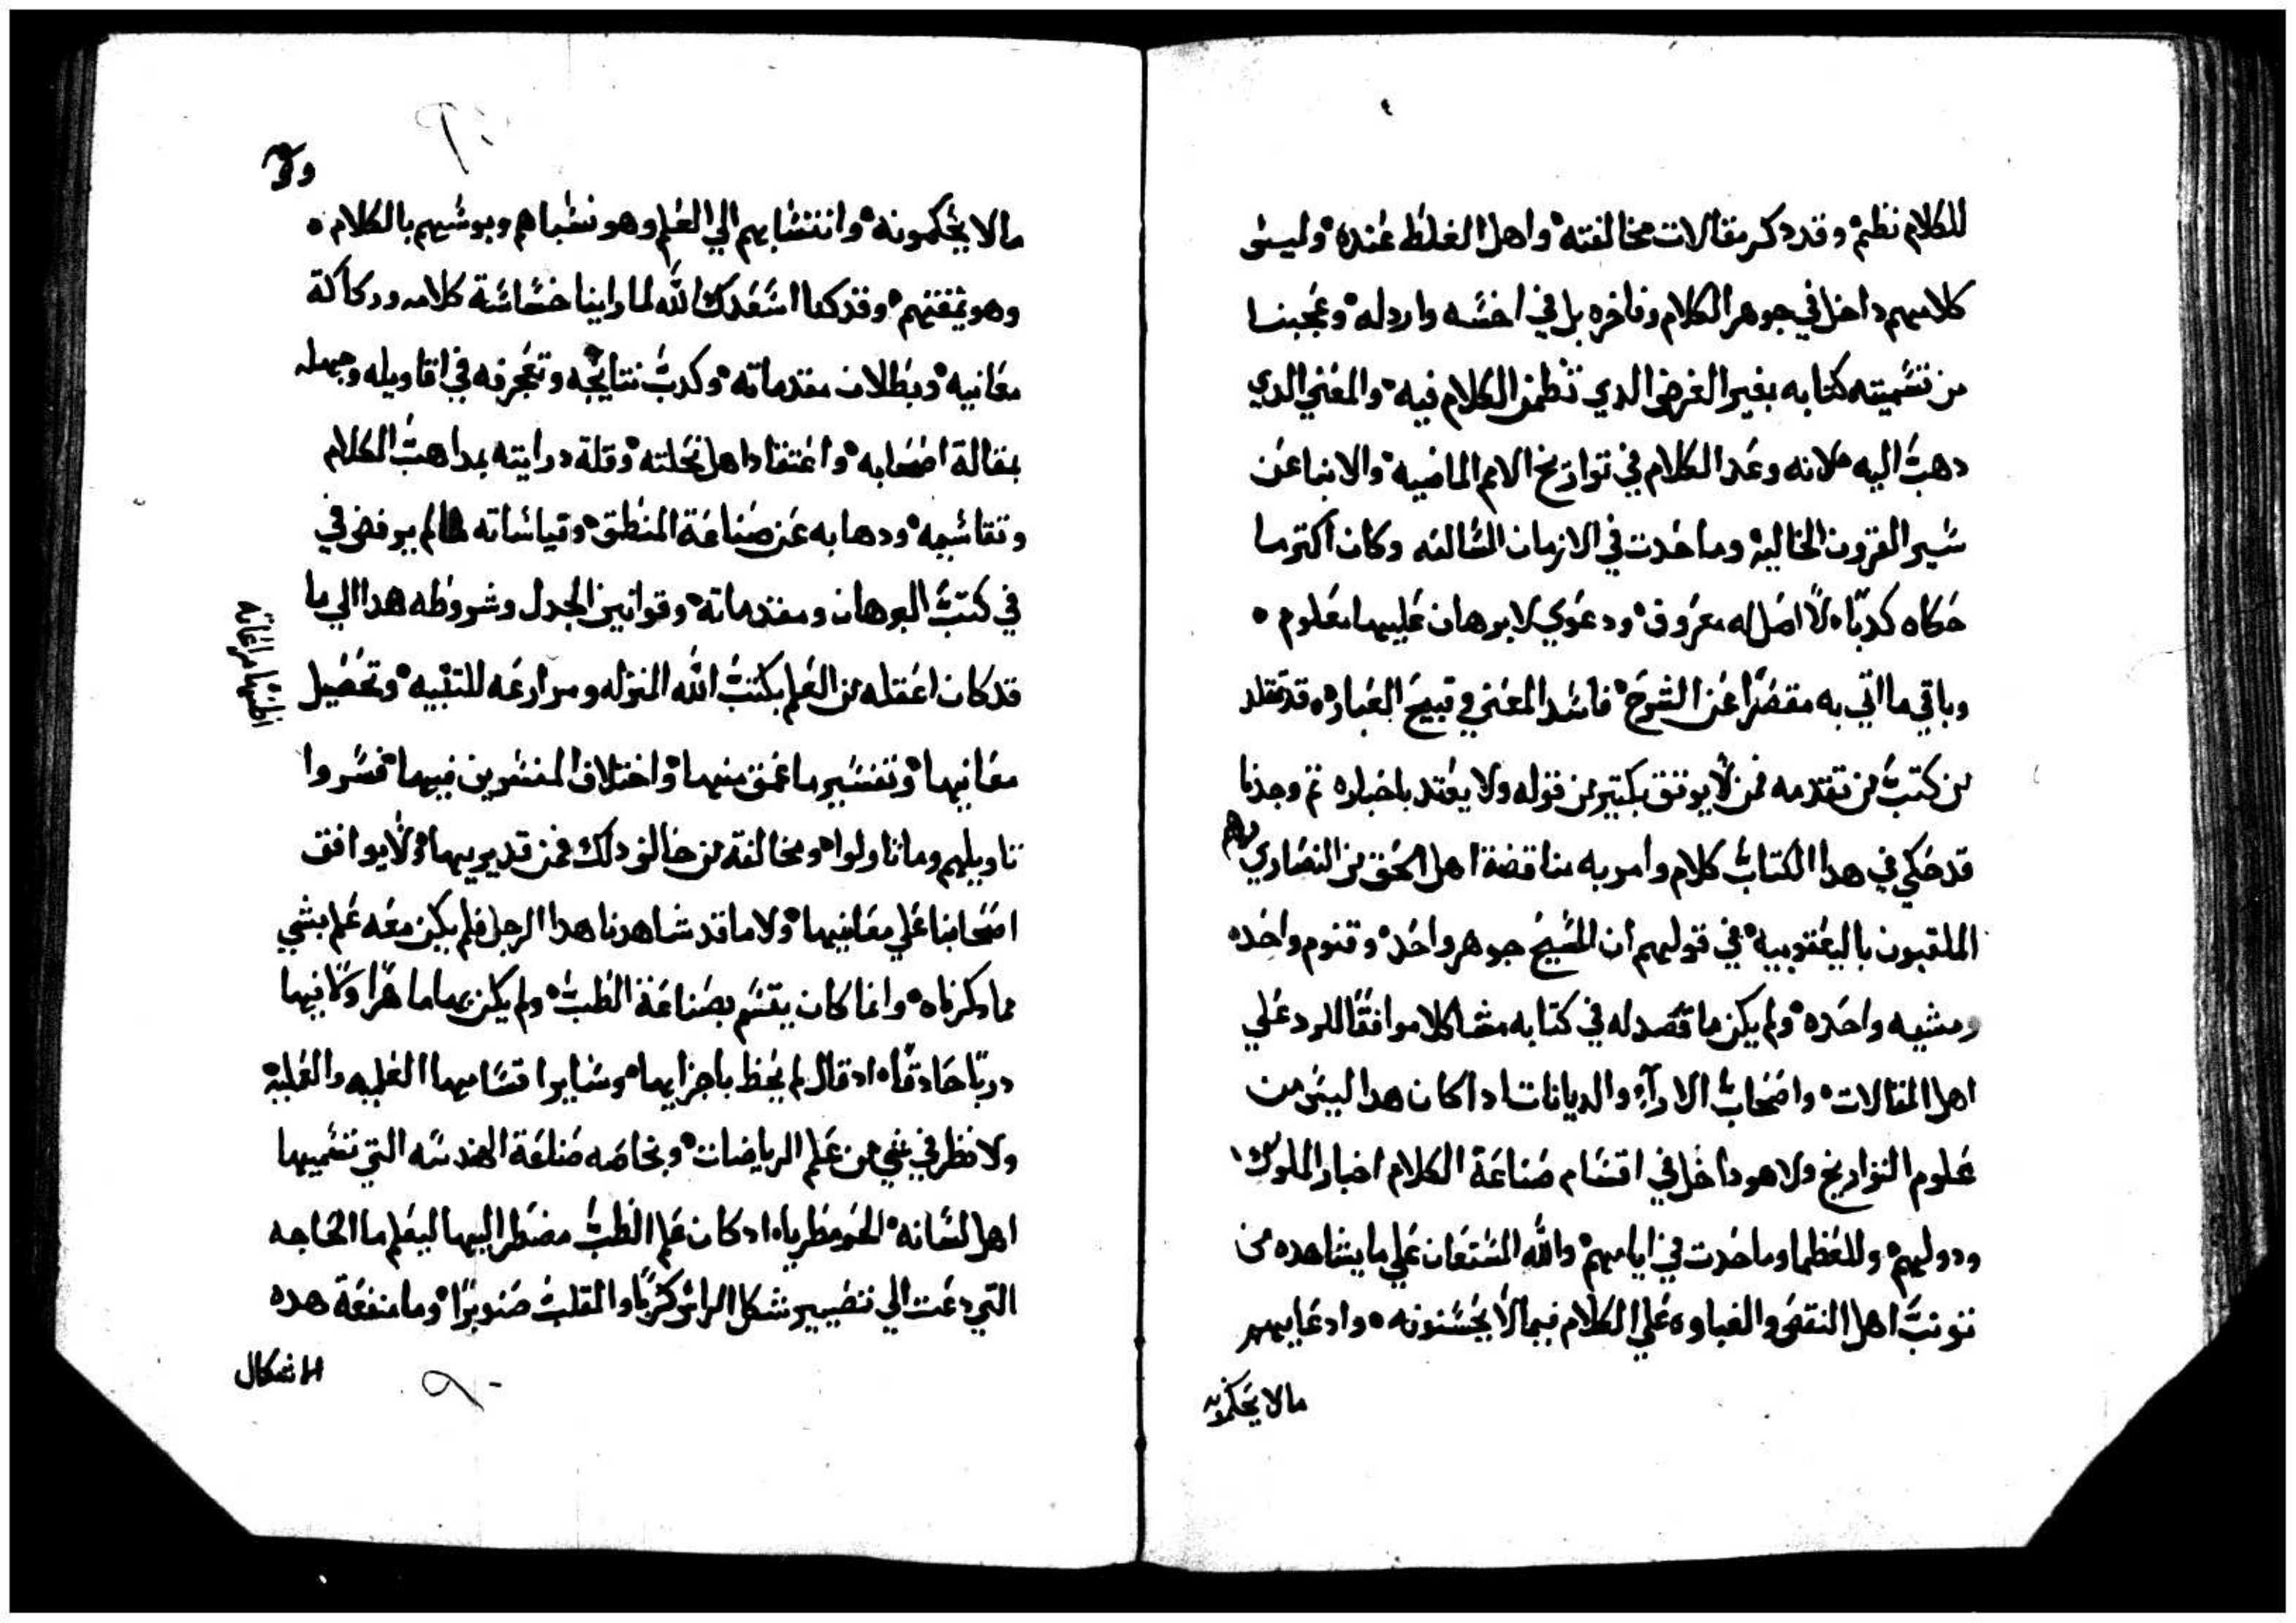 للكلام نظم وقد دكر مقالات مخالفته واهل الغلط عنده وليس
كلامهم داخل في جوهر الكلام وفاخره بل في اخسه واردله وعجبنا
من تسميته كتابه بغير الغرض الدي نظم الكلام فيه والمعني الدي
دهب اليه لانه وعد الكلام في تواريخ الامم الماضيه والانبا عن
سير القرون الخالية وما حدت في الازمان السالفه وكان اكتر ما
حكاه كدبًا لا اصل له معروف ودعوي لا برهان عليها معلوم
وباقي ما اتي به مقصرًا عن الشرح فاسد المعني قبيح العباره قد نقله
من كتب من تقدمه فمن لا يوتق بكتير من قوله ولا يعتد باخباره تم وجدنا
قد حكي في هدا الكتاب كلام وامر به مناقضة اهل الحق من النصاري وهم
الملقبون باليعقوبية في قولهم ان المسيح جوهر واحد وقنوم واحده
ومشيه واحده ولم يكن ما قصد له في كتابه مشاكلا موافقًا للرد علي
اهل المقالات واصحاب الاراء والديانات ادا كان هدا ليس من
علوم التواريخ ولا هو داخل في اقسام صناعة الكلام اخبار الملوك
ودولهم وللعظما وما حدت في ايامهم والله المستعان علي ما يشاهده من
توتب اهل النقص والغباوه علي الكلام فيما لا يحسنونه وادعايهم
مالا يحكمونه
ولا
مالا يحكمونه وانتسابهم الي العلم وهو نسباهم وبوسهم بالكلام
وهو يمقتهم وقد كنا اسعدك الله لما راينا خساسة كلامه وركاكة
معانيه وبطلان مقدماته وكدب نتايجه وتعجرفه في اقاويله وجهله
بمقالة اصحابه واعتقاد اهل نحلته وقلة درايته بمداهب الكلام
وتقاسيمه ودهابه عن صناعة المنطق وقياساته مالم يرفض في
في كتب البرهان ومقدماته وقوانين الجدل وشروطه هدا الي ما
قد كان اعقله من العلم بكتب الله المنزله ومراد عه للتنبيه وتحصيل
معانيها وتفسير ما عمق منها واختلاف المفسرين فيها فسروا
تاويلهم وما تاولوا ومخالفة من خالف دلك فمن قد يريها ولا يوافق
اصحابنا علي معانيها ولا ما قد شاهدنا هدا الرجل فلم يكن معه علم بشي
مما دكرناه وانما كان يقسم بصناعة الطب ولم يكن بها ماهرًا ولا فيها
دربًا حادقًا اد قال لم يحظ باجزايها وساير اقسامها العلميه والعملية
ولا نظر في شي من علم الرياضات وبخاصه صناعة الهندسه التي تسميها
اهل لسانه الجومطريا اد كان علم الطب مضطر اليها ليعلم ما الحاجه
التي دعت الي تصيير شكل الراس كريًا والقلب صنوبرًا وما منفعة هده
الاشكال